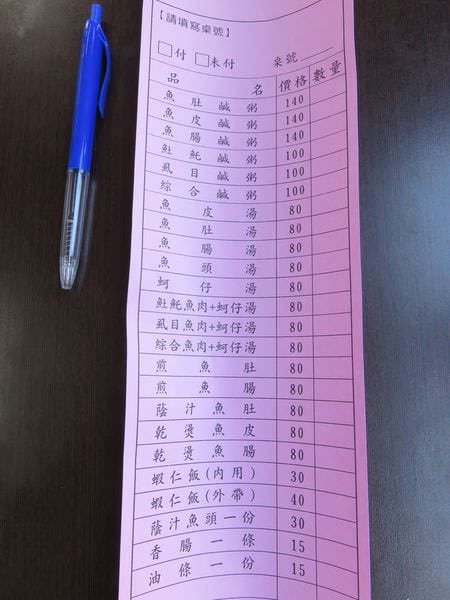 【請填寫桌號】
□付 □未付 桌號
品名 價格 數量
魚肚鹹粥 140
魚皮鹹粥 140
魚腸鹹粥 140
魠鹹粥 100
虱目鹹粥 100
綜合鹹粥 100
魚皮湯 80
魚肚湯 80
魚腸湯 80
魚頭湯 80
蚵仔湯 80
魠魚肉+蚵仔湯 80
虱目魚肉+蚵仔湯 80
綜合魚肉+蚵仔湯 80
煎魚肚 80
煎魚腸 80
蔭汁魚肚 80
乾燙魚皮 80
乾燙魚腸 80
蝦仁飯(內用) 30
蝦仁飯(外帶) 40
蔭汁魚頭一份 30
香腸一條 15
油條一份 15